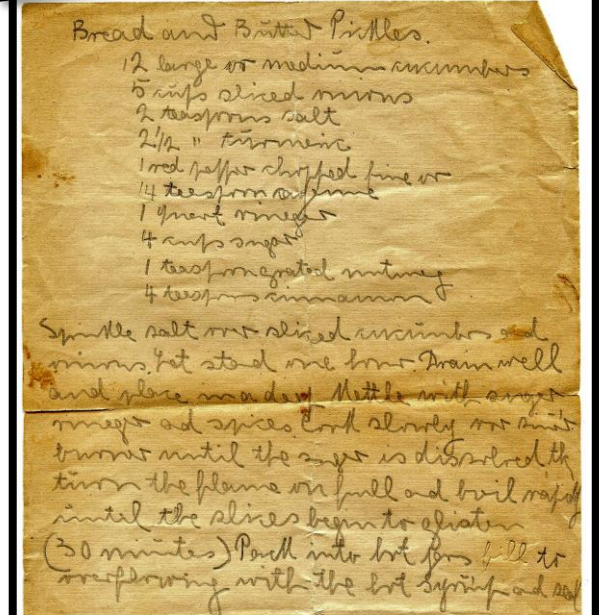 Bread and Butter Pickles.
12 large or medium cucumbers
5 cups sliced onions
2 teaspoons salt
2 1/2 " turmeric
1 red pepper chopped fine or
1/4 teaspoon cayenne
1 quart vinegar
4 cups sugar
1 teaspoon grated nutmeg
4 teaspoons cinnamon
Sprinkle salt over sliced cucumbers and
onions. Let stand one hour. Drain well
and place in a deep kettle with sugar
vinegar and spices. Cook slowly over
burner until the sugar is dissolved
turn the flame on full and boil rapidly
until the slices begin to glisten
(30 minutes) Pack into hot jars fill to
overflowing with the hot syrup and seal